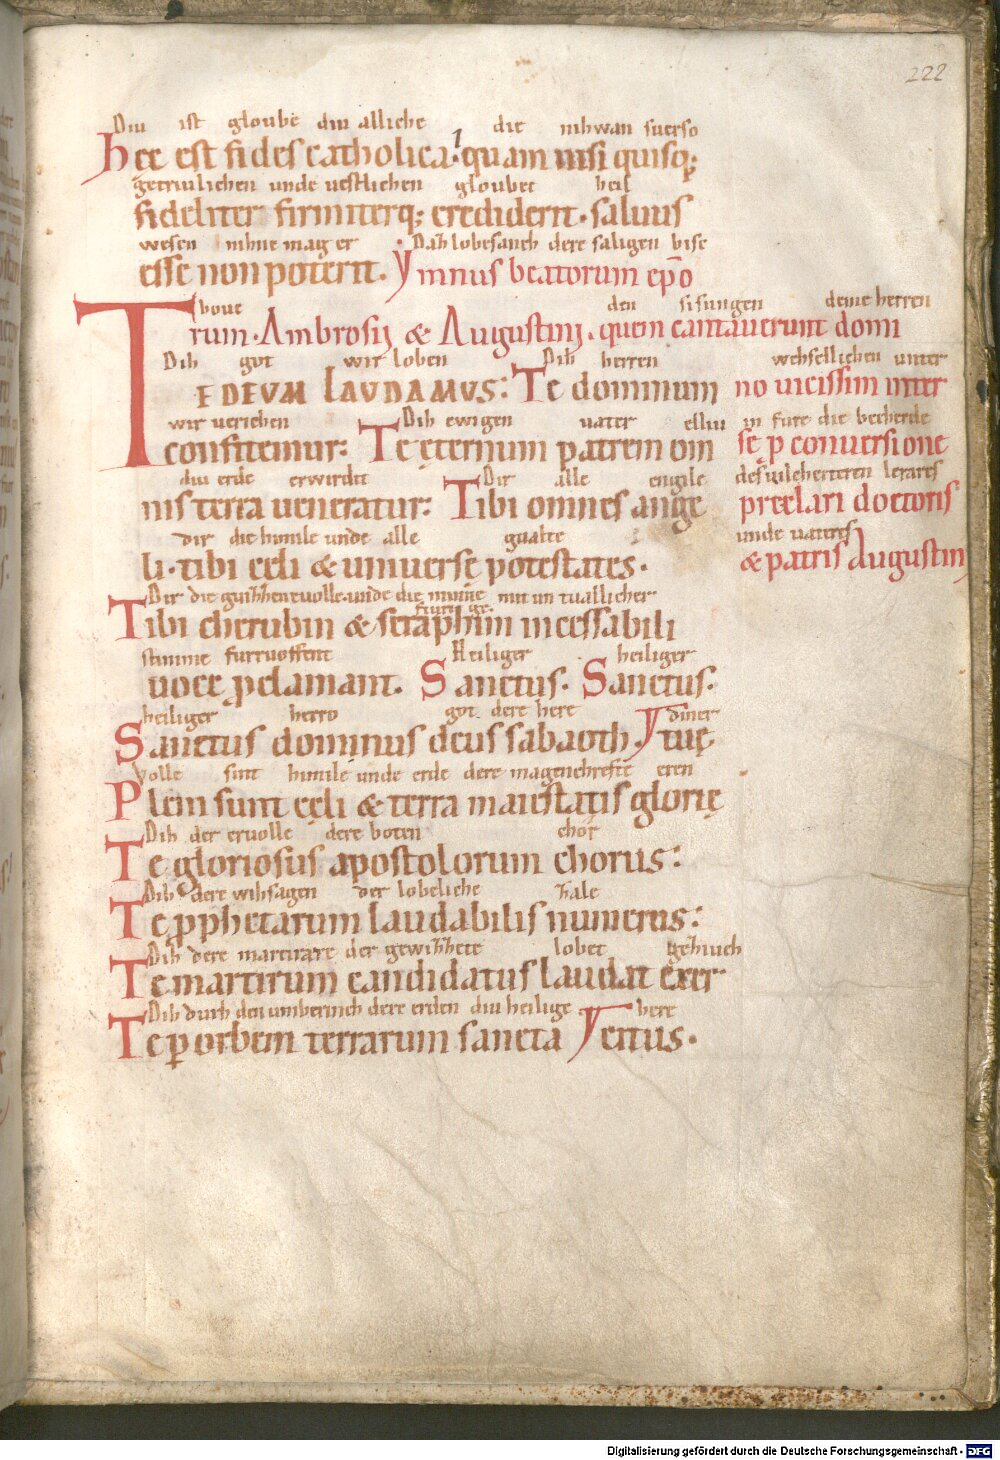 222
Diu ist gloube diu alliche die nihwan suerso
Hec est fides catholica. quam nisi quisq;
getriulichen unde uestlichen gloubet heil
fideliter firmiterq; crediderit. saluus
wesen nihne mag er Daz lobesanch dere saligen bisc
esse non poterit. Ymnus beatorum ep̄o
houe den si sungen deme herren
rum. Ambrosij & Augustinj. quem cantauerunt domi
Dih got wir loben Dih herren wehsellichen unter
TE DEUM LAUDAMUS: Te dominum no uicissim inter
wir ueriehen Dih ewigen uater elliu in fure die becherde
confitemur: Te ęternum patrem om sę ꝓ conuersione
diu erde erwirdit Dir alle engile
nis terra ueneratur: Tibi omnes ange preclari doctoris
dir die himile unde alle gualte unde uateres
li. tibi cęli & uniuerse potestates. & patris Augustinj
Dir die
Tibi cherubin & seraphim incessabili
stimme furruoffent Heiliger heiliger
uoce ꝓclamant. Sanctus. Sanctus:
heiliger herro got dere here diner
Sanctus dominus deus sabaoth. tuę
Volle sint himile unde erde dere magenchrefte eren
Pleni sunt cęli & terra maiestatis glorię
Dih der eruolle dere boten chor
Te gloriosus apostolorum chorus:
Dih dere wihsagen der lobeliche zale
Te ꝓphetarum laudabilis numerus:
Dih dere martirare der gewihhete lobet
Te martirum candidatus laudat exer
Dih durh den umberinch dere erden diu heilige here
Te ꝑ orbem terrarum sancta citus.
Digitalisierung gefördert durch die Deutsche Forschungsgemeinschaft - DFG